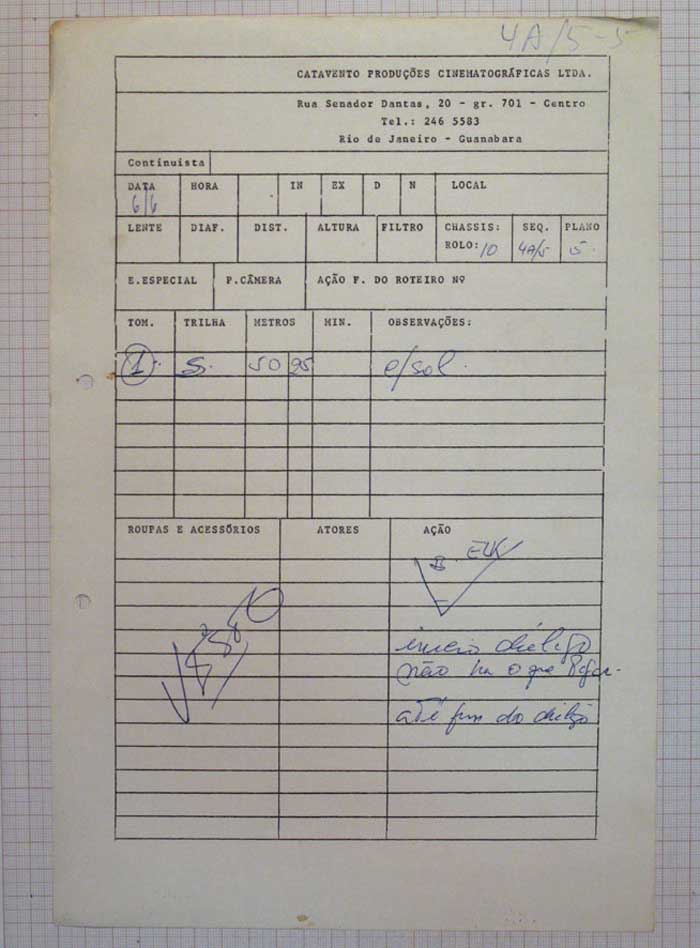 4A/5-5
CATAVENTO PRODUÇÕES CINEMATOGRÁFICAS LTDA.
Rua Senador Dantas, 20 - gr. 701 - Centro
Tel.: 246 5583
Rio de Janeiro - Guanabara
Continuista
DATA HORA IN EX D N LOCAL
6/6
LENTE DIAF. DIST. ALTURA FILTRO CHASSIS: SEQ. PLANO
ROLO: 10 4A/5 5.
E.ESPECIAL P.CÂMERA AÇÃO F. DO ROTEIRO Nº
TOM. TRILHA METROS MIN. OBSERVAÇÕES:
1 S. 50 95 c/sol.
ROUPAS E ACESSÓRIOS ATORES AÇÃO
início diálogo
não há o que
até fim do diálogo